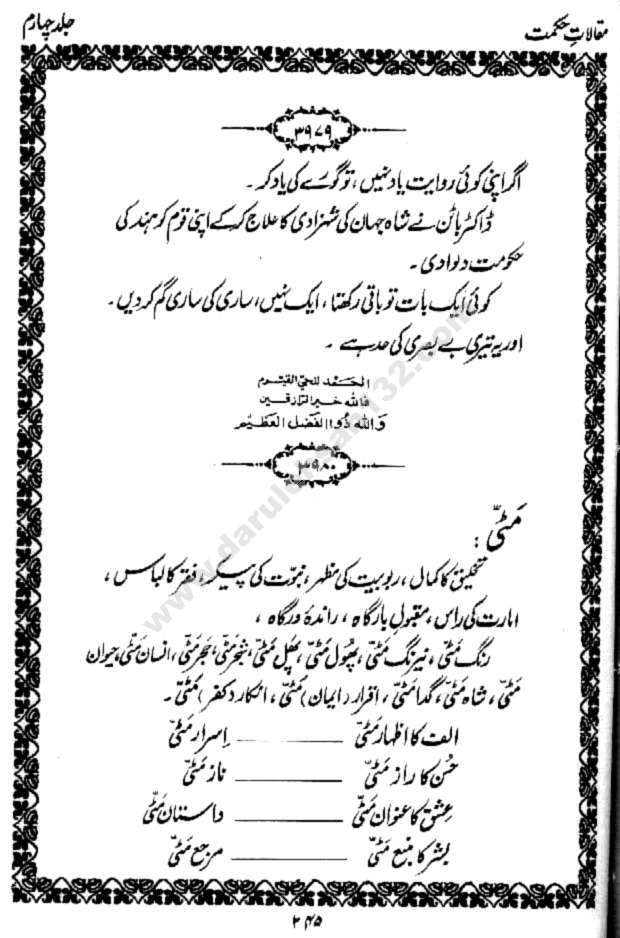 مقالاتِ حکمت جلد چہارم
۳۹۷۹
اگر اپنی کوئی روایت یاد نہیں، تو گورے کی یاد کر ۔
ڈاکٹر باٹن نے شاہ جہان کی شہزادی کا علاج کر کے اپنی قوم کو ہند کی
حکومت دلوا دی ۔
کوئی ایک بات تو باقی رکھتا، ایک نہیں، ساری کی ساری گم کر دیں ۔
اور یہ تیری بے بصری کی حد ہے ۔
الحمد للحی القیوم
فاللہ خیر الرازقین
واللہ ذو الفضل العظیم
۳۹۸۰
مَٹّی :
تخلیق کا کمال، ربوبیت کی مظہر، نبوّت کی پیکر، فقر کا لباس،
امارت کی راس، مقبولِ بارگاہ، راندۂ درگاہ،
رنگ مَٹّی، نیرنگ مَٹّی، پھُول مَٹّی، پھل مَٹّی، شجر مَٹّی، حجر مَٹّی، انسان مَٹّی، حیوان
مَٹّی، شاہ مَٹّی، گدا مَٹّی، اقرار (ایمان) مَٹّی، انکار (کفر) مَٹّی ۔
الف کا اظہار مَٹّی ــــــــ اسرار مَٹّی
حُسن کا راز مَٹّی ــــــــ ناز مَٹّی
عِشق کا عنوان مَٹّی ــــــــ داستان مَٹّی
بشر کا منبع مَٹّی ــــــــ مرجع مَٹّی
۲۴۵
www.darulehsan132.com